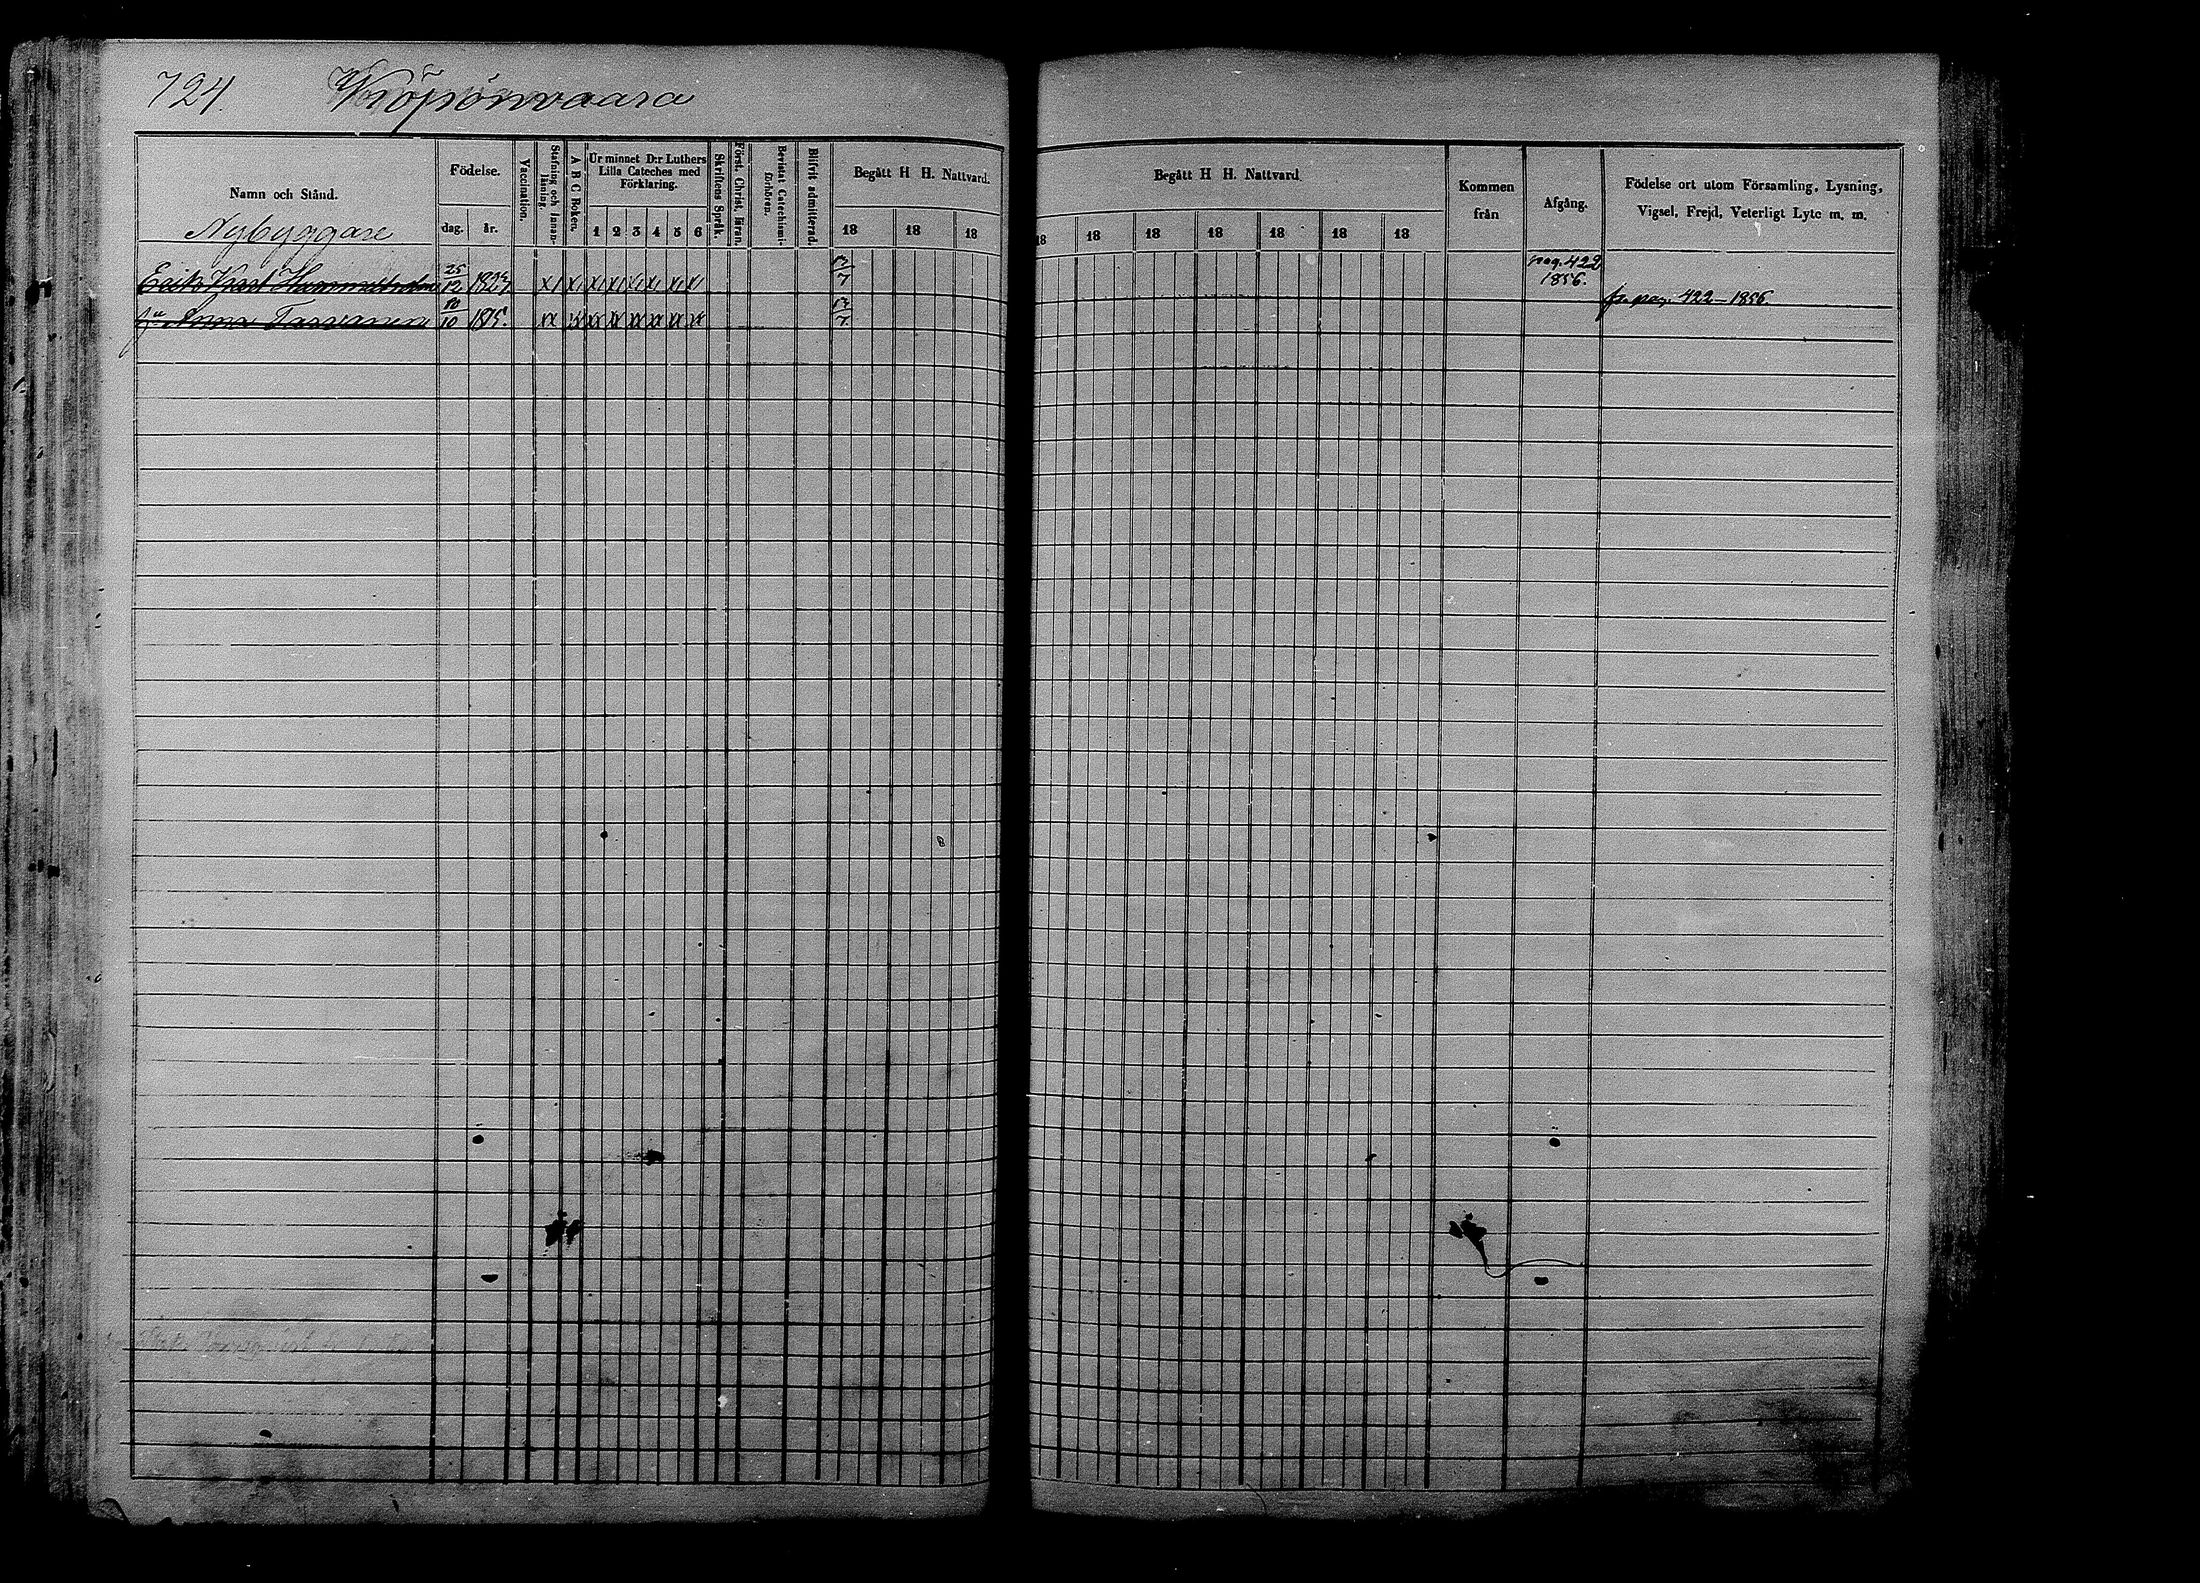 724.
Namn och Stånd.
Födelse.
dag.
år.
Vaccination.
Stafning och Innan-
läsning.
A B C Boken.
Ur minnet D:r Luthers
Lilla Cateches med
Förklaring.
1 2 3 4 5 6
Skriftens Språk.
Först. Christ. läran.
Bevistat Catechismi-
förhören.
Blifvit admitterad.
Begått H H. Nattvard.
18 18 18
Begått H H. Nattvard
18 18 18 18 18 18 18
Kommen
från
Afgång.
Födelse ort utom Församling, Lysning,
Vigsel, Frejd, Veterligt Lyte m. m.
Nybyggare
Erik Karl 25/12
pag. 422
1856.
Anna 10/10 1815.
fr. pag. 422–1856.